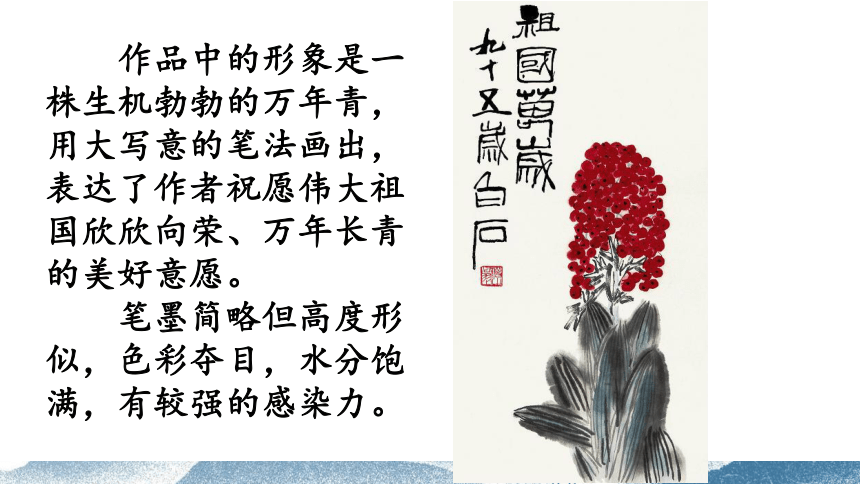 作品中的形象是一
株生机勃勃的万年青，
用大写意的笔法画出，
表达了作者祝愿伟大祖
国欣欣向荣、万年长青
的美好意愿。
笔墨简略但高度形
似，色彩夺目，水分饱
满，有较强的感染力。
祖國萬歲
九十五歲白石